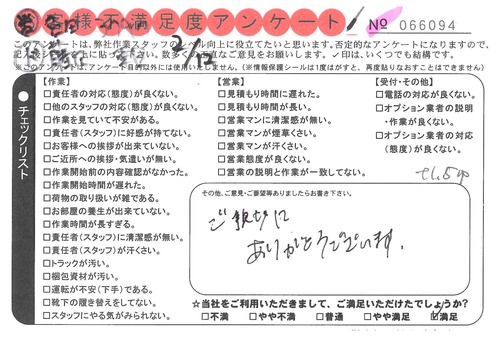 お客様不満足度アンケート
№ 066094
2/12
このアンケートは、弊社作業スタッフのレベル向上に役立てたいと思います。否定的なアンケートになりますので、
※このアンケートは、アンケート目的以外には使用いたしません。(※情報保護シールは1度はがすと、再度貼りなおすことはできません)
チェックリスト
【作業】
□責任者の対応(態度)が良くない。
□他のスタッフの対応(態度)が良くない。
□作業を見ていて不安がある。
□責任者(スタッフ)に好感が持てない。
□お客様への挨拶が出来ていない。
□ご近所への挨拶・気遣いが無い。
□作業開始前の内容確認がなかった。
□作業開始時間が遅れた。
□荷物の取り扱いが雑である。
□お部屋の養生が出来ていない。
□作業時間が長すぎる。
□責任者(スタッフ)に清潔感が無い。
□責任者(スタッフ)が汗くさい。
□トラックが汚い。
□梱包資材が汚い。
□運転が不安(下手)である。
□靴下の履き替えをしてない。
□スタッフにやる気がみられない。
【営業】
□見積もり時間に遅れた。
□見積もり時間が長い。
□営業マンに清潔感が無い。
□営業マンが煙草くさい。
□営業マンが汗くさい。
□営業態度が良くない。
□営業の説明と作業が一致してない。
【受付・その他】
□電話の対応が良くない。
□オプション業者の説明
・作業が良くない。
□オプション業者の対応
(態度)が良くない。
その他、ご意見・ご要望等ありましたらお書き下さい。
ご親切に
ありがとうございます。
☆当社をご利用いただきまして、ご満足いただけたでしょうか?
□不満 □やや不満 □普通 □やや満足 ☑満足